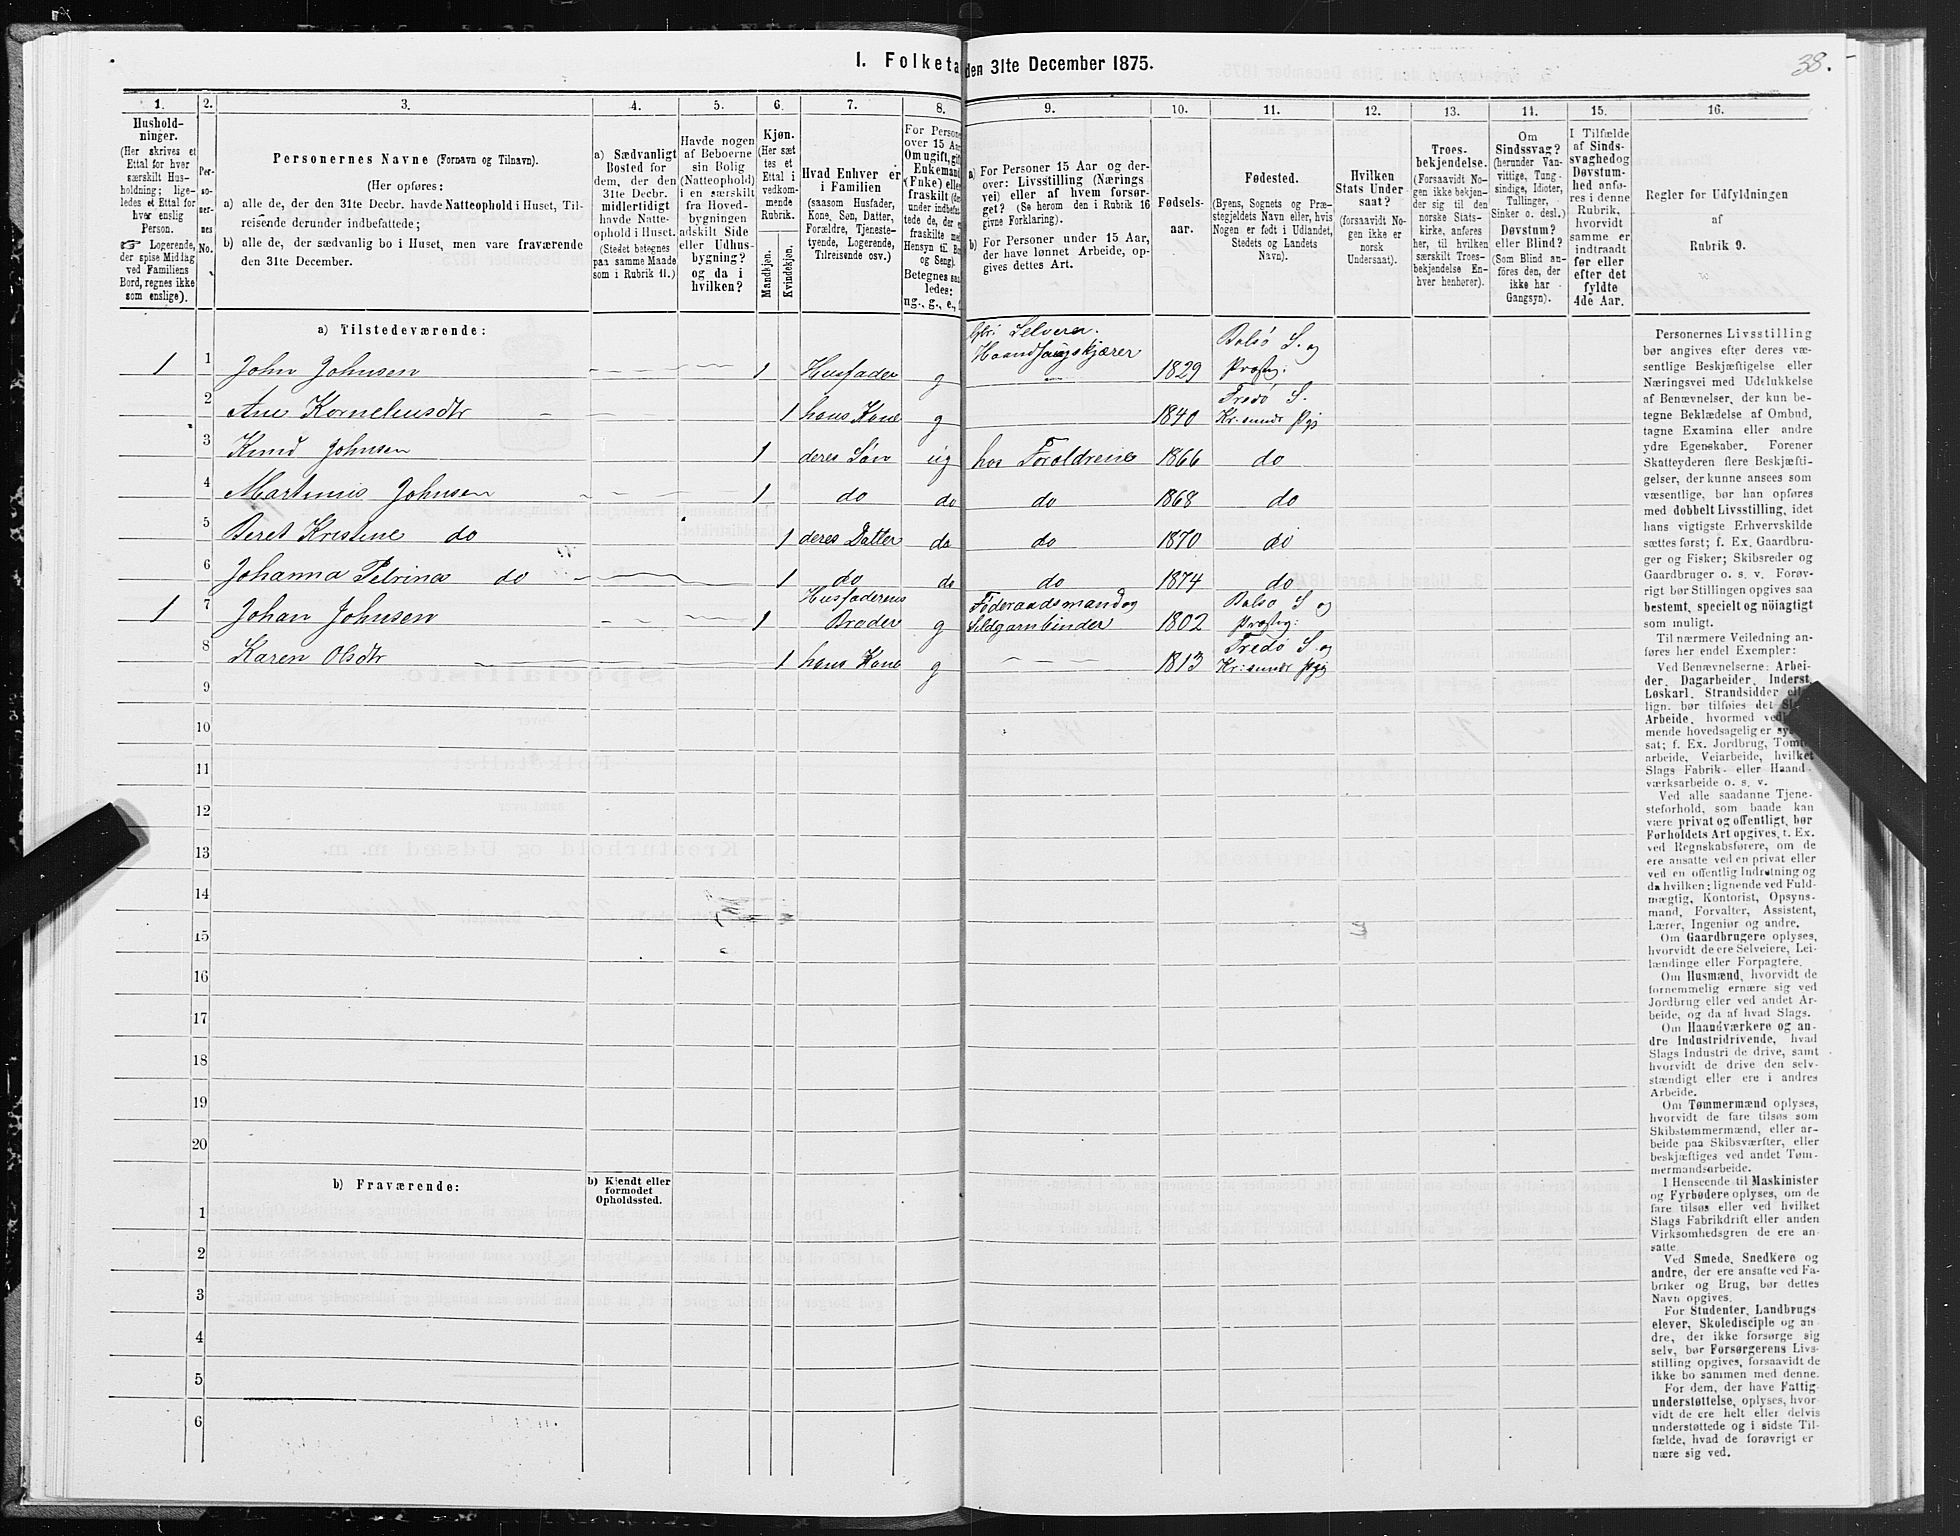 I. Folketa den 31te December 1875.
38.
1. 2. 3. 4. 5. 6. 7. 8. 9. 10. 11. 12. 13. 14. 15. 16.
Hushold-
ninger.
(Her skrives et
Ettal for hver
særskilt Hus-
holdning; lige-
ledes et Ettal for
hver enslig
Person.
☞ Logerende,
der spise Middag
ved Familiens
Bord, regnes ikke
som enslige).
Per-
so-
ner-
nes
No.
Personernes Navne (Fornavn og Tilnavn).
(Her opføres:
a) alle de, der den 31te Decbr. havde Natteophold i Huset, Til-
reisende derunder indbefattede;
b) alle de, der sædvanlig bo i Huset, men vare fraværende
den 31te December.
a) Sædvanligt
Bosted for
dem, der den
31te Decbr.
midlertidigt
havde Natte-
ophold i Huset.
(Stedet betegnes
paa samme Maade
som i Rubrik 11.)
Havde nogen
af Beboerne
sin Bolig
(Natteophold)
i en særskilt
fra Hoved-
bygningen
adskilt Side
eller Udhus-
bygning?
og da i
hvilken?
Kjøn.
(Her sæt-
tes et
Ettal i
vedkom-
mende
Rubrik.
Mandkjøn.
Kvindekjøn.
Hvad Enhver er
i Familien
(saasom Husfader,
Kone, Søn, Datter,
Forældre, Tjeneste-
tyende, Logerende,
Tilreisende osv.)
For Persone
over 15 Aar
Om ugift, gift
Enkemand
(Enke) elle
fraskilt (der
under indbefat-
tede de, der er
fraskilte med
Hensyn til Bo
og Seng).
Betegnes saa
ledes:
ug., g., e., f.
a) For Personer 15 Aar og der-
over: Livsstilling (Nærings
vei) eller af hvem forsør-
get? (Se herom den i Rubrik 16
givne Forklaring).
b) For Personer under 15 Aar,
der have lønnet Arbeide, op-
gives dettes Art.
Fødsels-
aar.
Fødested.
(Byens, Sognets og Præ-
stegjeldets Navn eller, hvis
Nogen er født i Udlandet,
Stedets og Landets
Navn).
Hvilken
Stats Under-
saat?
(forsaavidt No-
gen ikke er
norsk
Undersaat).
Troes-
bekjendelse.
(Forsaavidt No-
gen ikke bekjen-
der sig til den
norske Stats-
kirke, anføres
her, til hvilken
særskilt Troes-
bekjendelse En-
hver henhører).
Om
Sindssvag?
(herunder Van-
vittige, Tung-
sindige, Idioter,
Tullinger,
Sinker o. desl.)
Døvstum?
eller Blind?
(Som Blind an-
føres den, der
ikke har
Gangsyn).
I Tilfælde
af Sinds-
svaghed og
Døvstum-
hed anfø-
res i denne
Rubrik,
hvorvidt
samme er
indtraadt
før eller
efter det
fyldte
4de Aar.
Regler for Udfyldningen
af
Rubrik 9.
a) Tilstedeværende:
1 1 John Johnsen 1 Husfader g Selveier. Haandfangskjærer 1829 Bolsø S. og Præstg:
2 Ane Kornelinsdtr 1 hans Kone g 1840 Fredø S. Kr:sunds Pgj
3 Knud Johnsen 1 deres Søn ug hos Forældrene 1866 do
4 Martinus Johnsen 1 do do do 1868 do
5 Beret Kristine do 1 deres Datter do do 1870 do
6 Johanna Petrina do 1 do do do 1874 do
1 7 Johan Johnsen 1 Husfaderens Broder g Føderaadsmand og Sildgarnbinder 1802 Bolsø S og Præstg:
8 Karen Olsdtr 1 hans Kone g 1813 Fredø S og Kr:sunds Pgj
9
10
11
12
13
14
15
16
17
18
19
20
b) Fraværende:
b) Kjendt eller
formodet
Opholdssted.
1
2
3
4
5
6
Personernes Livsstilling
bør angives efter deres væ-
sentlige Beskjæftigelse eller
Næringsvei med Udelukkelse
af Benævnelser, der kun be-
tegne Beklædelse af Ombud,
tagne Examina eller andre
ydre Egenskaber. Forener
Skatteyderen flere Beskjæfti-
gelser, der kunne ansees som
væsentlige, bør han opføres
med dobbelt Livsstilling, idet
hans vigtigste Erhvervskilde
sættes først; f. Ex. Gaardbru-
ger og Fisker; Skibsreder og
Gaardbruger o. s. v. Forøv-
rigt bør Stillingen opgives saa
bestemt, specielt og nöiagtigt
som muligt.
Til nærmere Veiledning an-
føres her endel Exempler:
Ved Benævnelserne: Arbei-
der, Dagarbeider, Inderst,
Løskarl, Strandsidder ell
lign. bør tilføies det Sl
Arbeide, hvormed ved
mende hovedsagelig er sys
sat; f. Ex. Jordbrug, Tomt
arbeide, Veiarbeide, hvilket
Slags Fabrik- eller Haand-
værksarbeide o. s. v.
Ved alle saadanne Tjene-
steforhold, som baade kan
være privat og offentligt, bør
Forholdets Art opgives, t. Ex.
ved Regnskabsførere, om de
ere ansatte ved en privat eller
ved en offentlig Indretning og
da hvilken; lignende ved Fuld-
mægtig, Kontorist, Opsyns-
mand, Forvalter, Assistent,
Lærer, Ingeniør og andre.
Om Gaardbrugere oplyses,
hvorvidt de ere Selveiere, Lei-
lændinge eller Forpagtere.
Om Husmænd, hvorvidt de
fornemmelig ernære sig ved
Jordbrug eller ved andet Ar-
beide, og da af hvad Slags.
Om Haandværkere og an-
dre Industridrivende, hvad
Slags Industri de drive, samt
hvorvidt de drive den selv-
stændigt eller ere i andres
Arbeide.
Om Tømmermænd oplyses,
hvorvidt de fare tilsøs som
Skibstømmermænd, eller ar-
beide paa Skibsværfter, eller
beskjæftiges ved andet Tøm-
mermandsarbeide.
I Henseende til Maskinister
og Fyrbødere oplyses, om de
fare tilsøs eller ved hvilket
Slags Fabrikdrift eller anden
Virksomhedsgren de ere an-
satte.
Ved Smede, Snedkere og
andre, der ere ansatte ved Fa-
briker og Brug, bør dettes
Navn opgives.
For Studenter, Landbrugs-
elever, Skoledisciple og an-
dre, der ikke forsørge sig
selv, bør Forsørgerens Livs-
stilling opgives, forsaavidt de
ikke bo sammen med denne.
For dem, der have Fattig-
understøttelse, oplyses, hvor-
vidt de ere helt eller delvis
understøttede og i sidste Til-
fælde, hvad de forøvrigt er-
nære sig ved.